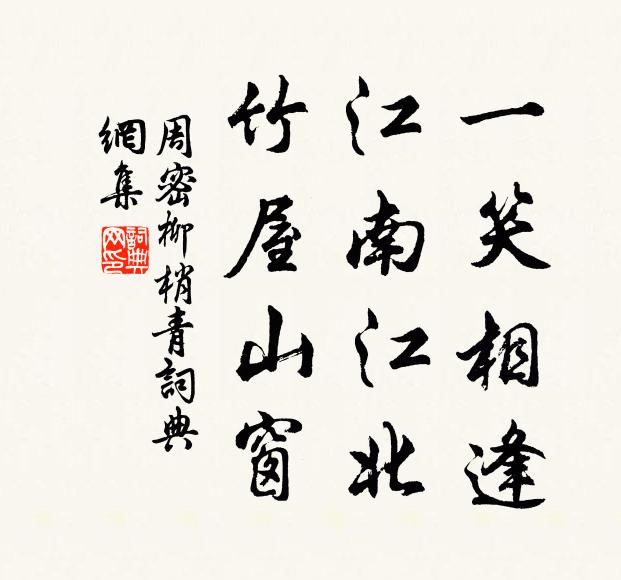 一笑相逢
江南江北
竹屋山窗
周密柳梢青詞典
網集
詞典网印